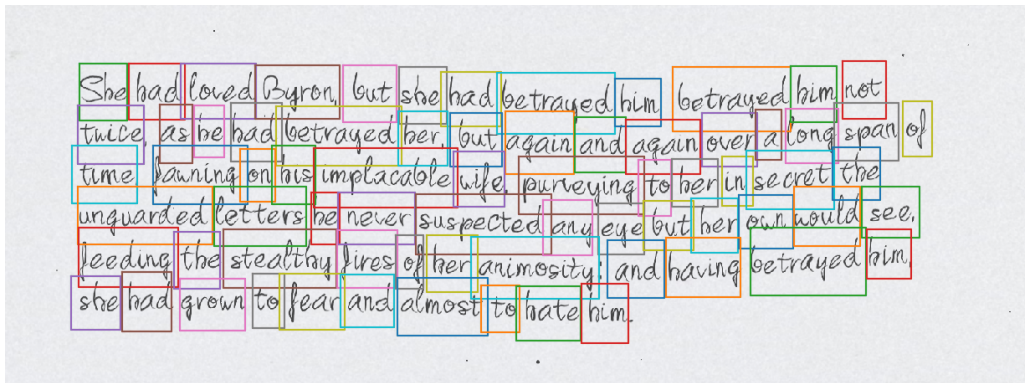 She had loved Byron, but she had betrayed him betrayed him not
twice, as he had betrayed her, but again and again over a long span of
time fawning on his implacable wife, purveying to her in secret the
unguarded letters he never suspected any eye but her own would see,
feeding the stealthy fires of her animosity; and having betrayed him,
she had grown to fear and almost to hate him.